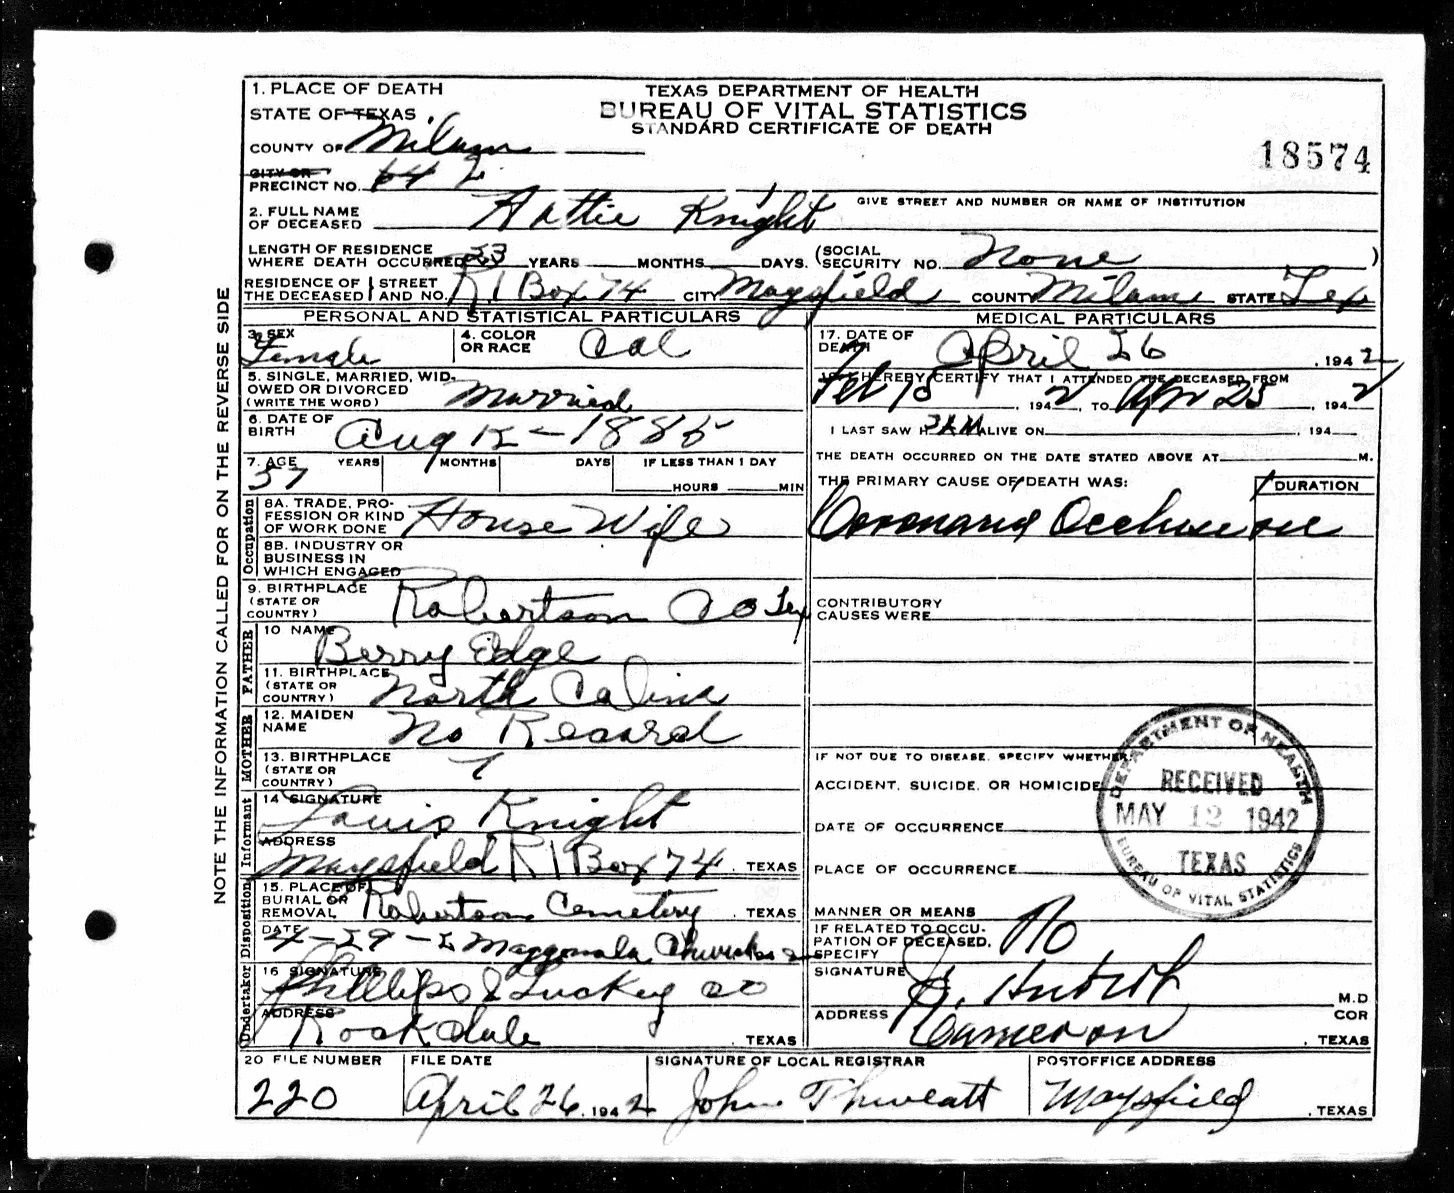 1. PLACE OF DEATH
STATE OF TEXAS
COUNTY OF Milam
CITY OR
PRECINCT NO. 64 2
TEXAS DEPARTMENT OF HEALTH
BUREAU OF VITAL STATISTICS
STANDARD CERTIFICATE OF DEATH
18574
GIVE STREET AND NUMBER OR NAME OF INSTITUTION
2. FULL NAME
OF DECEASED Hattie Knight
LENGTH OF RESIDENCE
WHERE DEATH OCCURRED 53 YEARS MONTHS DAYS. (SOCIAL
SECURITY NO. None )
RESIDENCE OF STREET
THE DECEASED AND NO. R1 Box 74 CITY Maysfield COUNTY Milam STATE Tex
PERSONAL AND STATISTICAL PARTICULARS
3. SEX
Female
4. COLOR
OR RACE Col
5. SINGLE, MARRIED, WID-
OWED OR DIVORCED
(WRITE THE WORD) Married
6. DATE OF
BIRTH Aug 12 - 1885
7. AGE YEARS MONTHS DAYS IF LESS THAN 1 DAY
57 HOURS MIN
Occupation
8A. TRADE, PRO-
FESSION OR KIND
OF WORK DONE House Wife
8B. INDUSTRY OR
BUSINESS IN
WHICH ENGAGED
9. BIRTHPLACE
(STATE OR
COUNTRY) Robertson Co Tex
FATHER
10 NAME
Berry Edge
11. BIRTHPLACE
(STATE OR
COUNTRY) North Calina
MOTHER
12. MAIDEN
NAME No Record
13. BIRTHPLACE
(STATE OR
COUNTRY)
Informant
14 SIGNATURE
Louis Knight
ADDRESS
Maysfield R1 Box 74 . TEXAS
Disposition
15. PLACE OF
BURIAL OR
REMOVAL Robertson Cemetery . TEXAS
DATE
4-29-2
Undertaker
16 SIGNATURE
Phillips & Luckey Co
ADDRESS
Rockdale . TEXAS
MEDICAL PARTICULARS
17. DATE OF
DEATH April 26 , 1942
18. I HEREBY CERTIFY THAT I ATTENDED THE DECEASED FROM
Feb 18 , 1942, TO Apr 25 , 1942
I LAST SAW H 3AM ALIVE ON , 194
THE DEATH OCCURRED ON THE DATE STATED ABOVE AT M.
THE PRIMARY CAUSE OF DEATH WAS: DURATION
Coronary Occlusion
CONTRIBUTORY
CAUSES WERE
IF NOT DUE TO DISEASE, SPECIFY WHETHER:
ACCIDENT, SUICIDE, OR HOMICIDE
DATE OF OCCURRENCE
PLACE OF OCCURRENCE
MANNER OR MEANS
IF RELATED TO OCCU-
PATION OF DECEASED,
SPECIFY No
SIGNATURE
M.D
COR
ADDRESS Cameron , TEXAS
DEPARTMENT OF HEALTH
RECEIVED
MAY 12 1942
TEXAS
BUREAU OF VITAL STATISTICS
20 FILE NUMBER
220
FILE DATE
April 26, 1942
SIGNATURE OF LOCAL REGISTRAR
John Thweatt
POSTOFFICE ADDRESS
Maysfield , TEXAS
NOTE THE INFORMATION CALLED FOR ON THE REVERSE SIDE